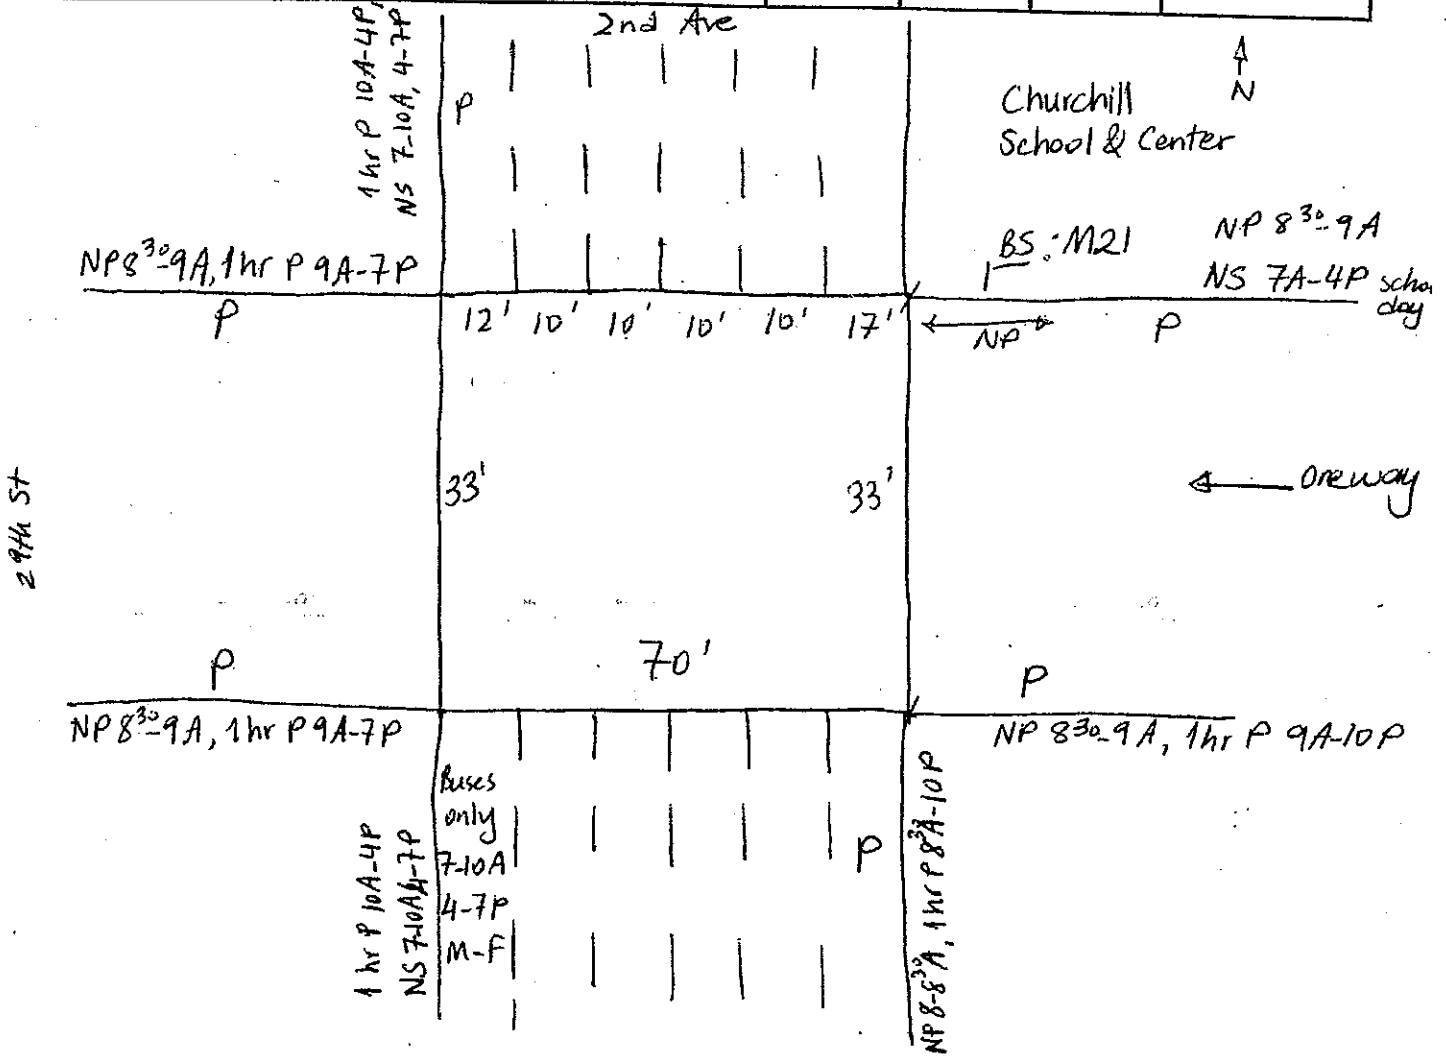 2nd Ave
1 hr P 10A-4P,
NS 7-10A, 4-7P
P
N
Churchill
School & Center
BS: M21
NP 8³⁰-9A
NS 7A-4P
day
NP8³⁰-9A, 1hr P 9A-7P
P
12' 10' 10' 10' 10' 17'
NP
P
29th St
33'
33'
Oneway
P
70'
P
NP8³⁰-9A, 1hr P 9A-7P
NP 8³⁰-9A, 1hr P 9A-10P
1 hr P 10A-4P
NS 7-10A 4-7P
Buses
only
7-10A
4-7P
M-F
P
NP8-8³⁰A, 1hr P 8³⁰A-10P